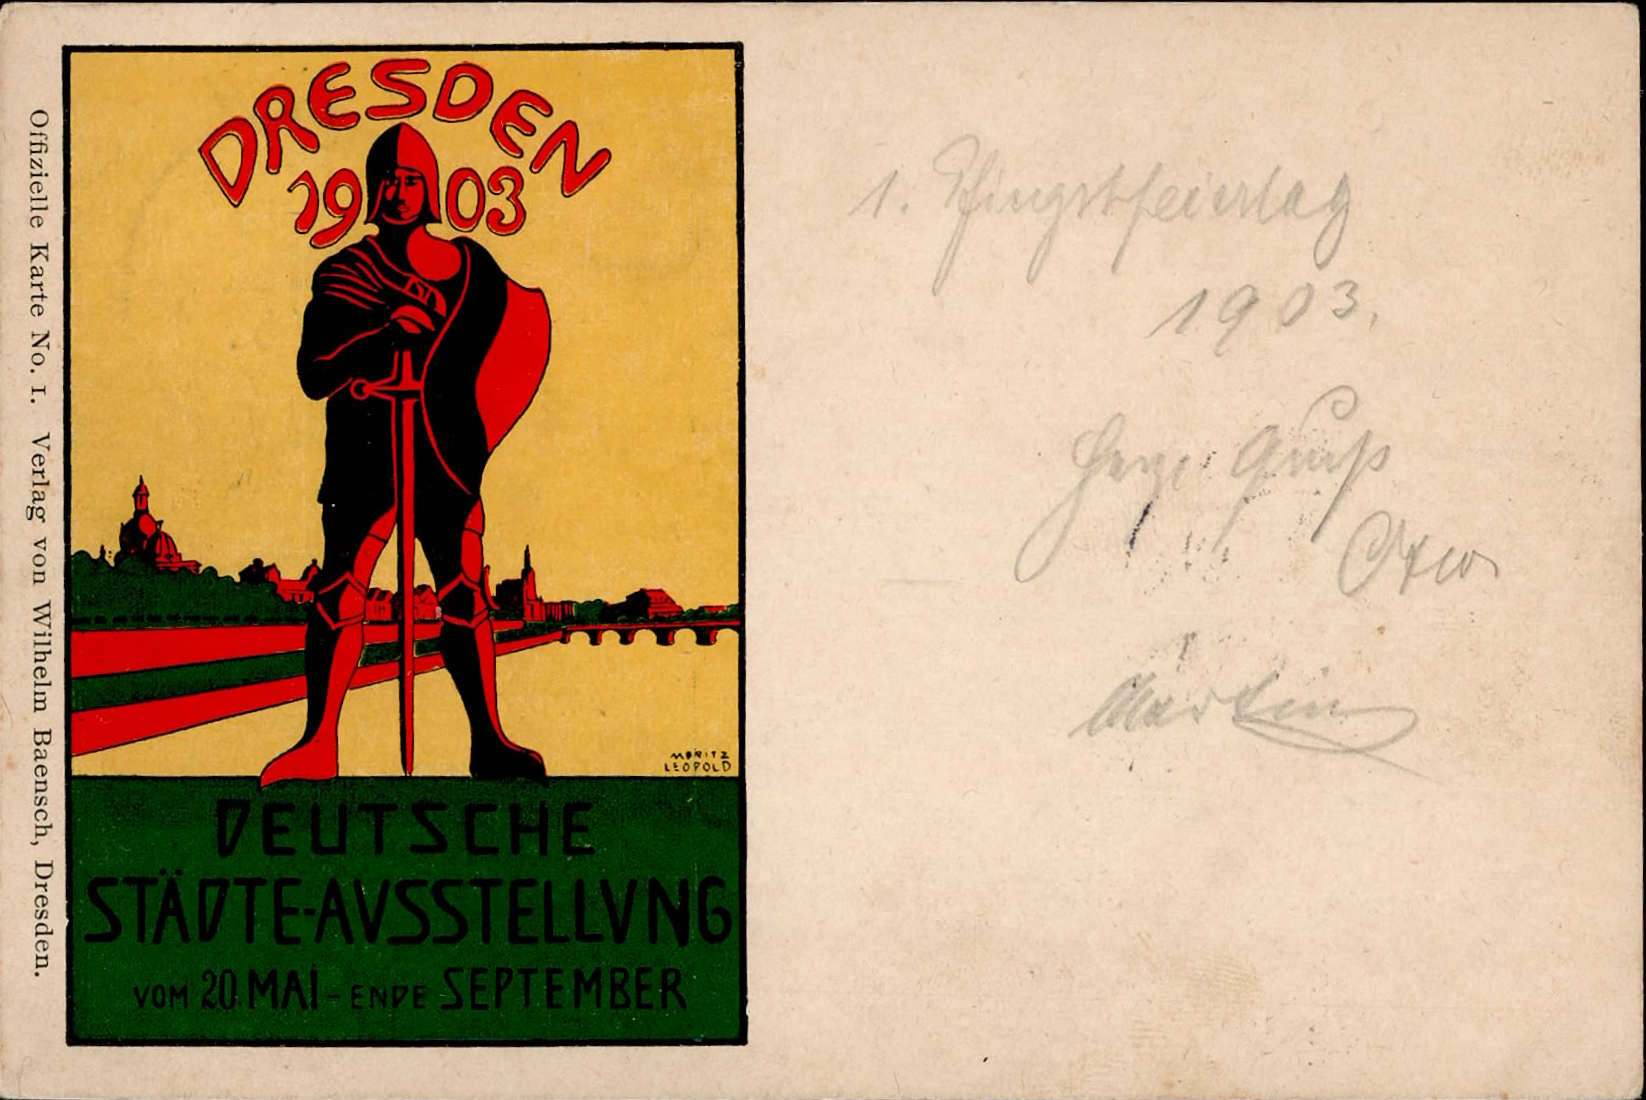 Offizielle Karte No. 1. Verlag von Wilhelm Baensch, Dresden.
DRESDEN
1903
MORITZ
LEOPOLD
DEUTSCHE
STÄDTE-AVSSTELLVNG
VOM 20. MAI - ENDE SEPTEMBER
1. Pfingstfeiertag
1903.
Herzl. Gruß
Martin